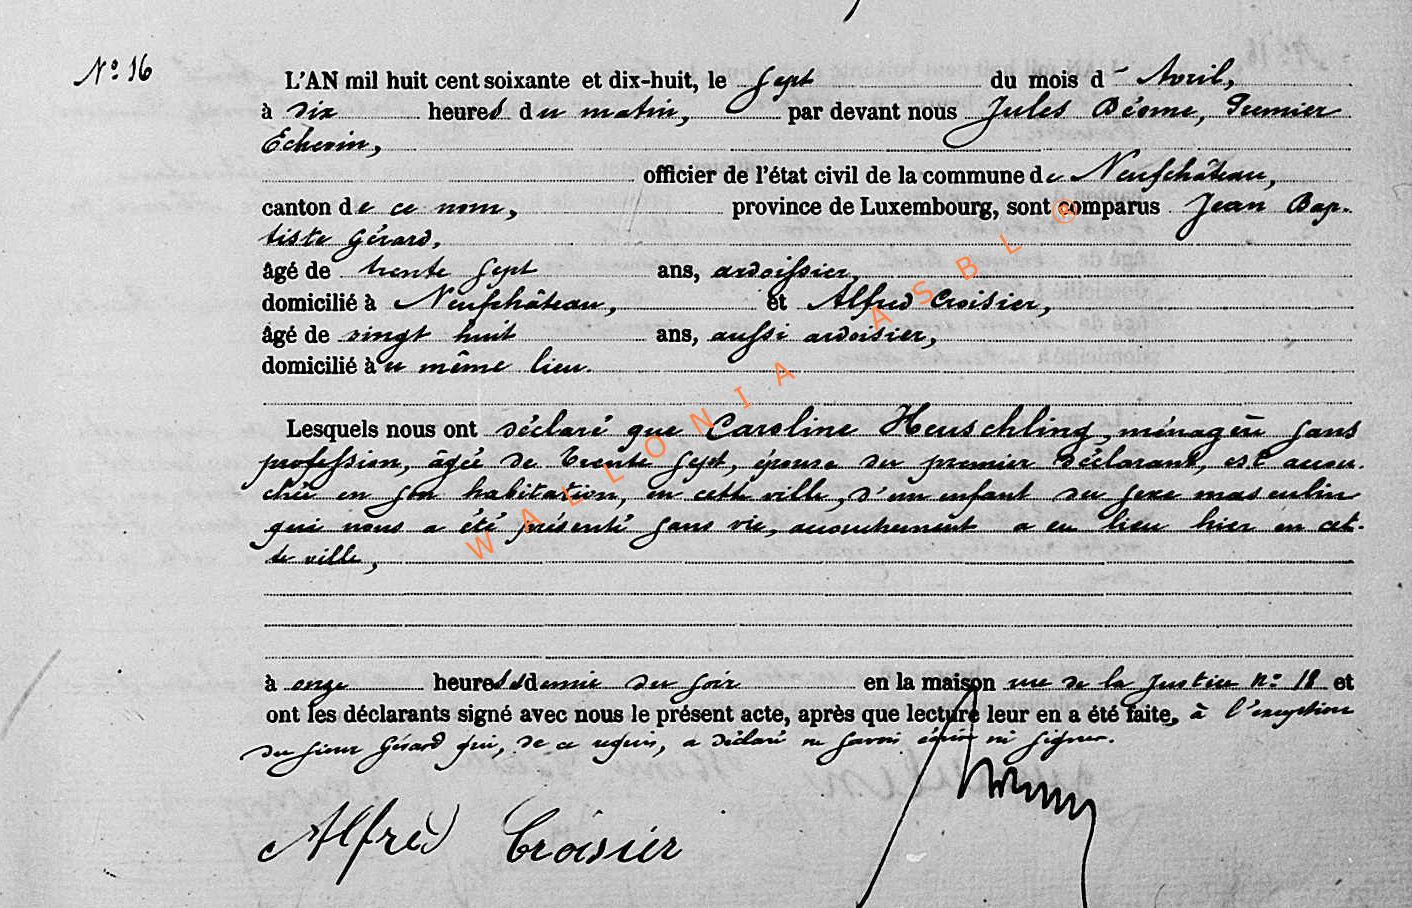 Nº 16
L'AN mil huit cent soixante et dix-huit, le Sept du mois d' Avril,
à dix heures du matin, par devant nous Jules Déome, Premier
Echevin,
officier de l'état civil de la commune de Neufchâteau,
canton de ce nom, province de Luxembourg, sont comparus Jean Bap-
tiste Gérard,
âgé de trente sept ans, ardoissier,
domicilié à Neufchâteau, et Alfred Croisier,
âgé de vingt huit ans, aussi ardoisier,
domicilié au même lieu.
Lesquels nous ont déclaré que Caroline Heuschling, ménagère sans
profession, âgée de trente sept, épouse du premier déclarant, est accou-
chée en son habitation, en cette ville, d'un enfant du sexe masculin
qui nous a été présenté sans vie, accouchement a eu lieu hier en cet-
te ville,
à onze heures demie du soir en la maison rue de la Justice nº 18 et
ont les déclarants signé avec nous le présent acte, après que lecture leur en a été faite, à l'exception
du sieur Gérard qui, de ce requis, a déclaré ne savoir écrire ni signer.
Alfred Croisier
WALLONIA ASBL ®